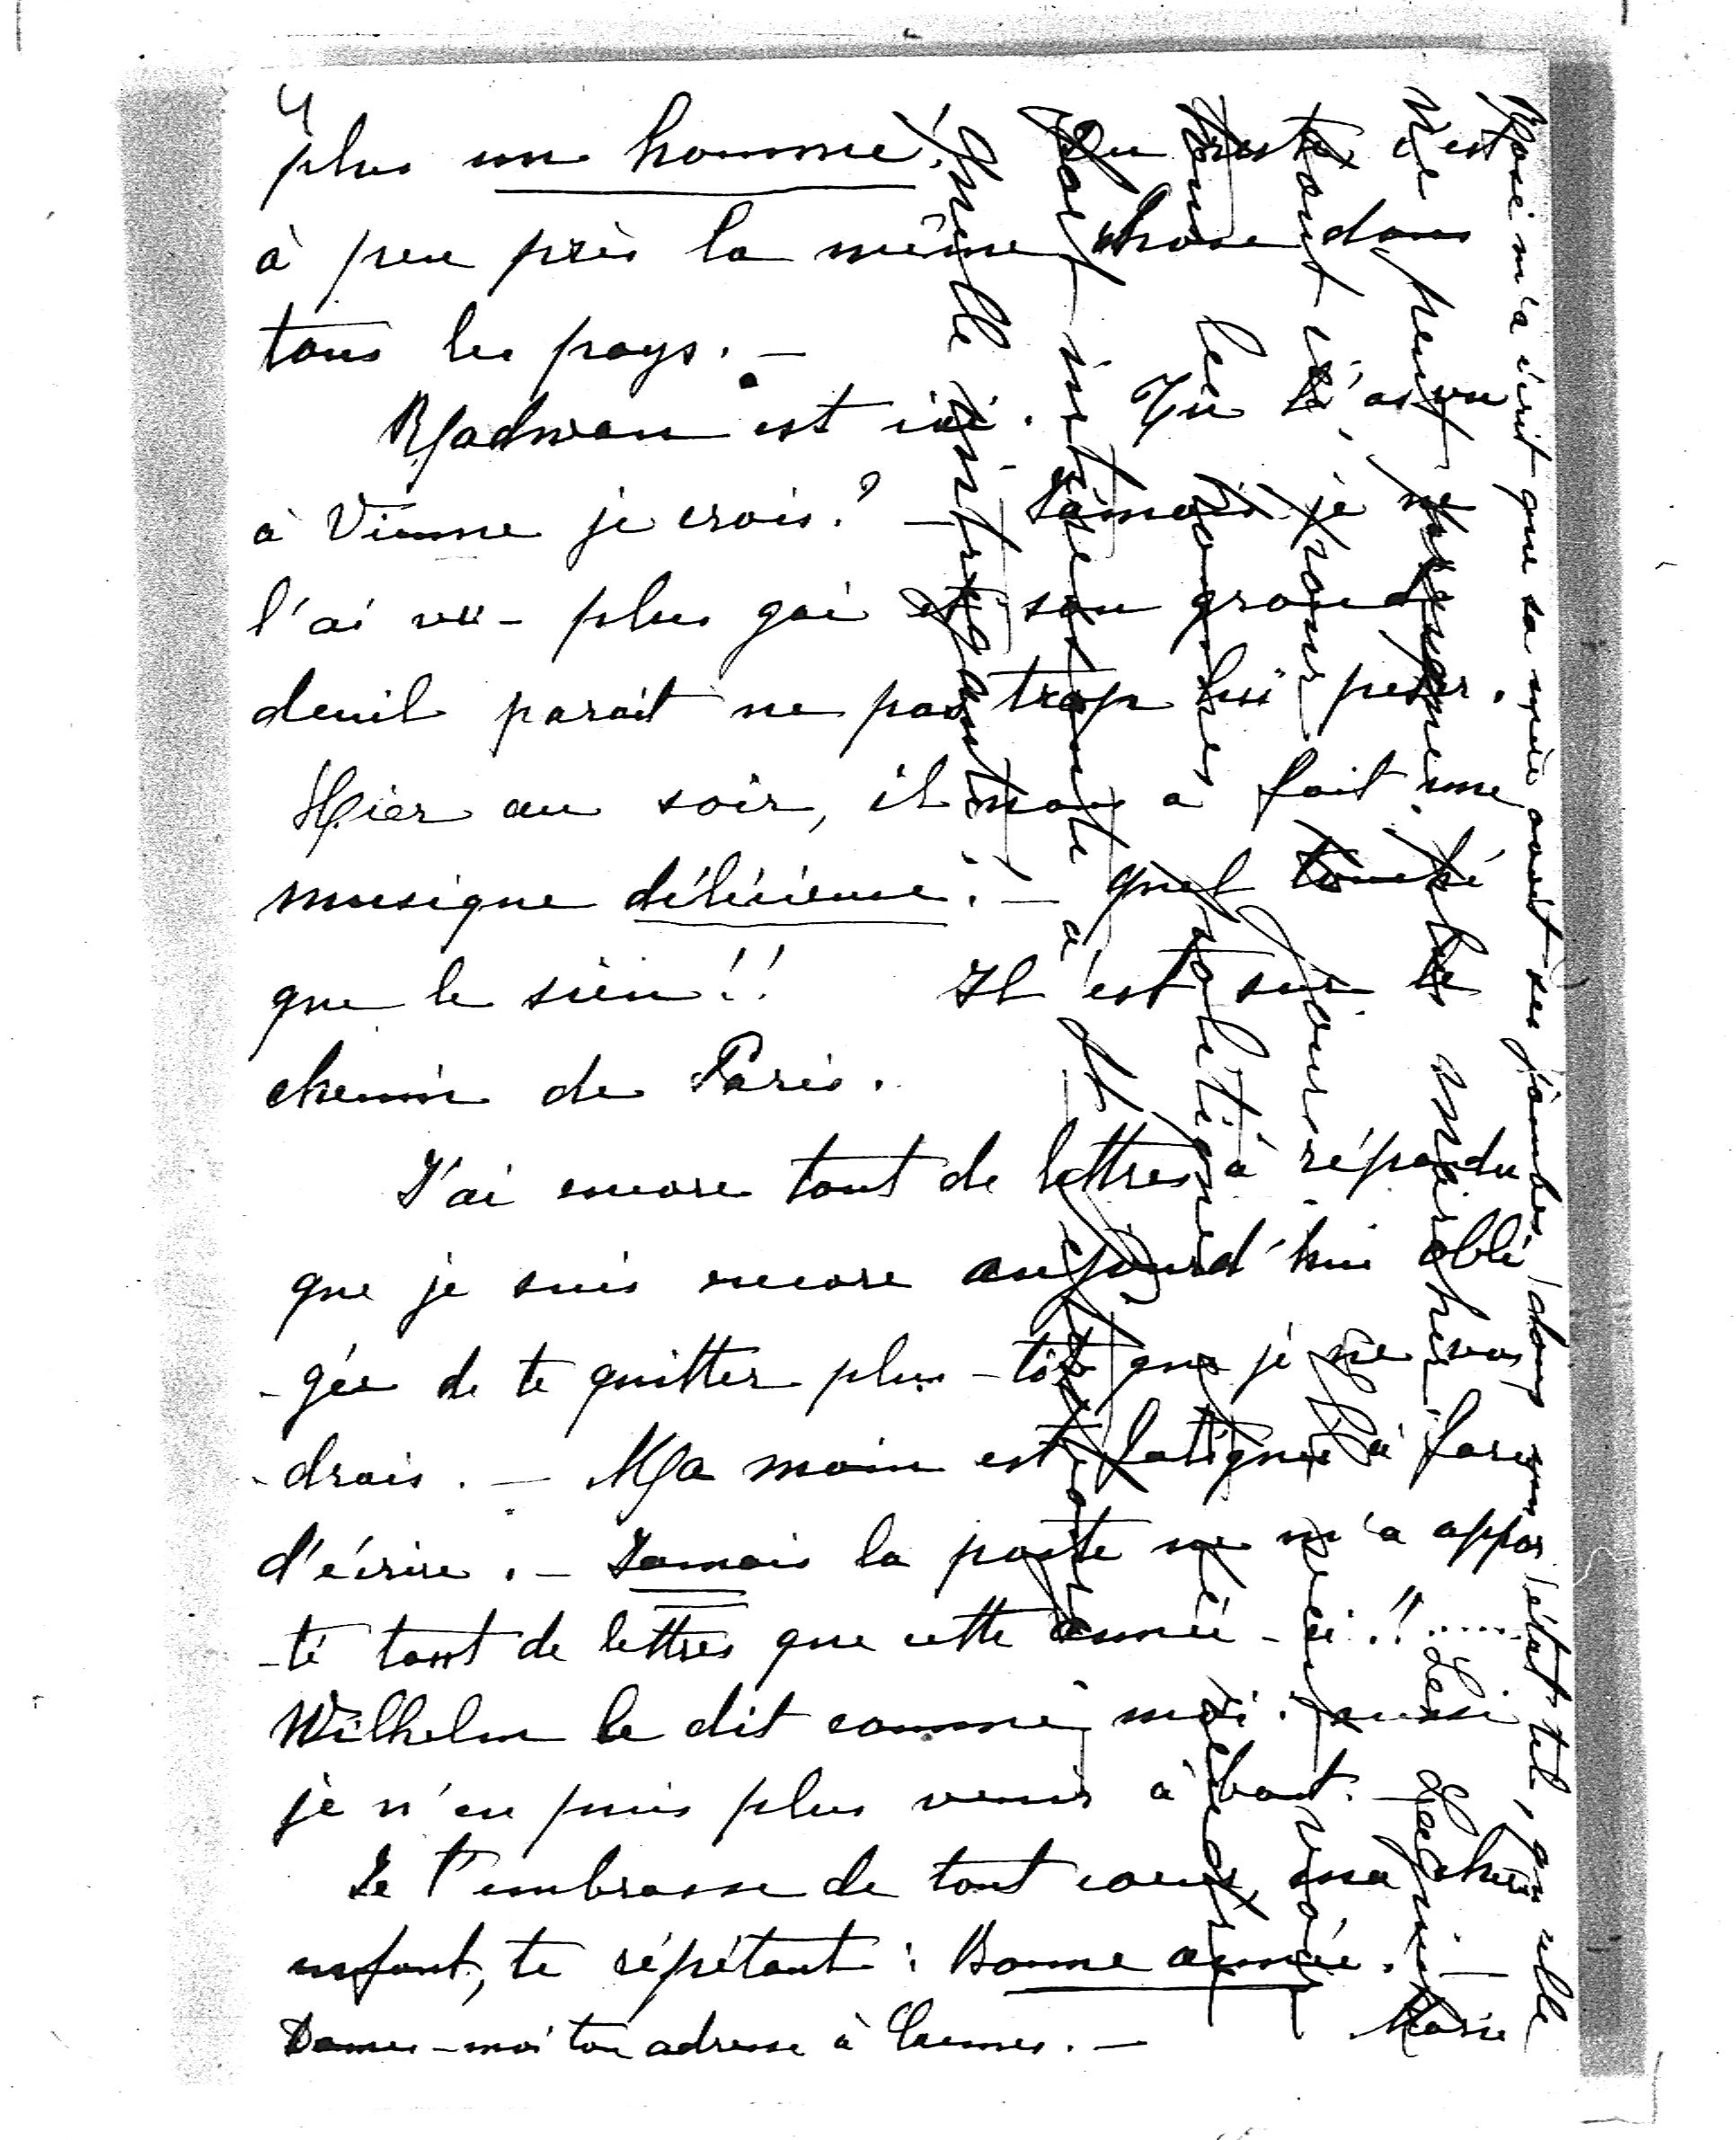 4
plus un homme! Du reste, c'est
à peu près la même chose dans
tous les pays. —
Madwan est ici. Tu l'as vu
à Vienne je crois? — Jamais je ne
l'ai vu — plus gai et son grand
deuil parait ne pas trop lui peser.
Hier au soir, il nous a fait une
musique délicieuse. — quel touché
que le sien!! Il est sur le
chemin de Paris.
J'ai encore tant de lettres à répondu
que je suis encore aujourd'hui obli
-gée de te quitter plus-tôt que je ne vou
-drais. — Ma main est fatiguée à force
d'écrire. — Jamais la poste ne m'a appor
-té tant de lettres que cette année-ci!! .....
Wilhelm le dit comme moi. aussi
je n'en puis plus venir à bout. —
Je t'embrasse de tout coeur, ma chère
enfant, te répétant: Bonne année. —
Donnes-moi ton adresse à Cannes. — Marie
Rosé m'a écrit que sa mère avait ses jambes dans un état tel, qu'elle
ne peut presque plus marcher. Les
tout vous jours
les voines politiques
fort intéressante à
Quelle intrigante!